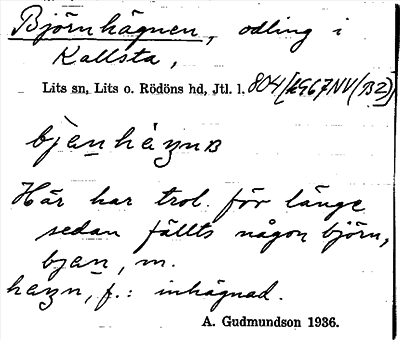 Björnhägnen, odling i
Kallsta,
Lits sn, Lits o. Rödöns hd, Jtl. l. 804/1967NV(B2)
bjan häznB
Här har trol. för länge
sedan fällts någon björn,
bjan, m.
hazn, f.: inhägnad.
A. Gudmundson 1936.